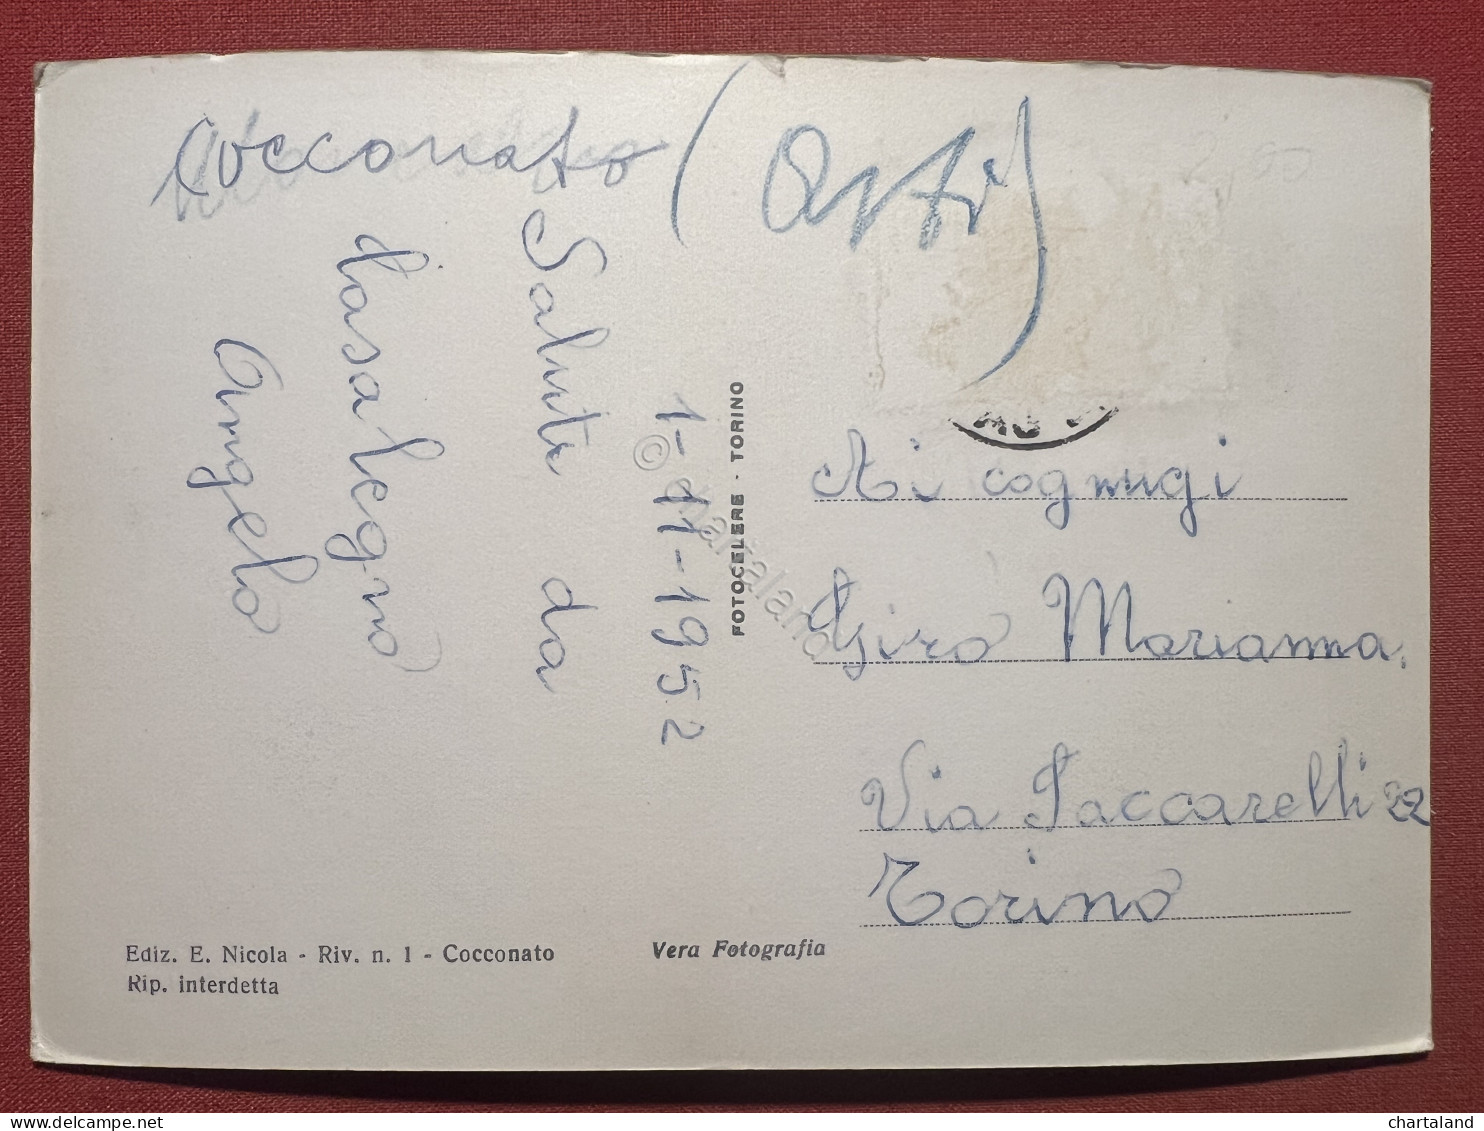 Cocconato (Asti)
1-11-1952
Saluti da
Casalegno
Angelo
FOTOCELERE - TORINO
Ai cognugi
Giro Marianna
Via Vaccarelli 22
Torino
Ediz. E. Nicola - Riv. n. 1 - Cocconato
Rip. interdetta
Vera Fotografia
© chartaland
chartaland